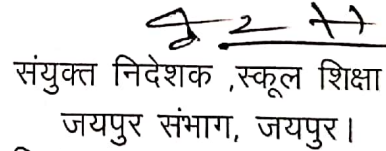 संयुक्त निदेशक ,स्कूल शिक्षा
जयपुर संभाग, जयपुर।